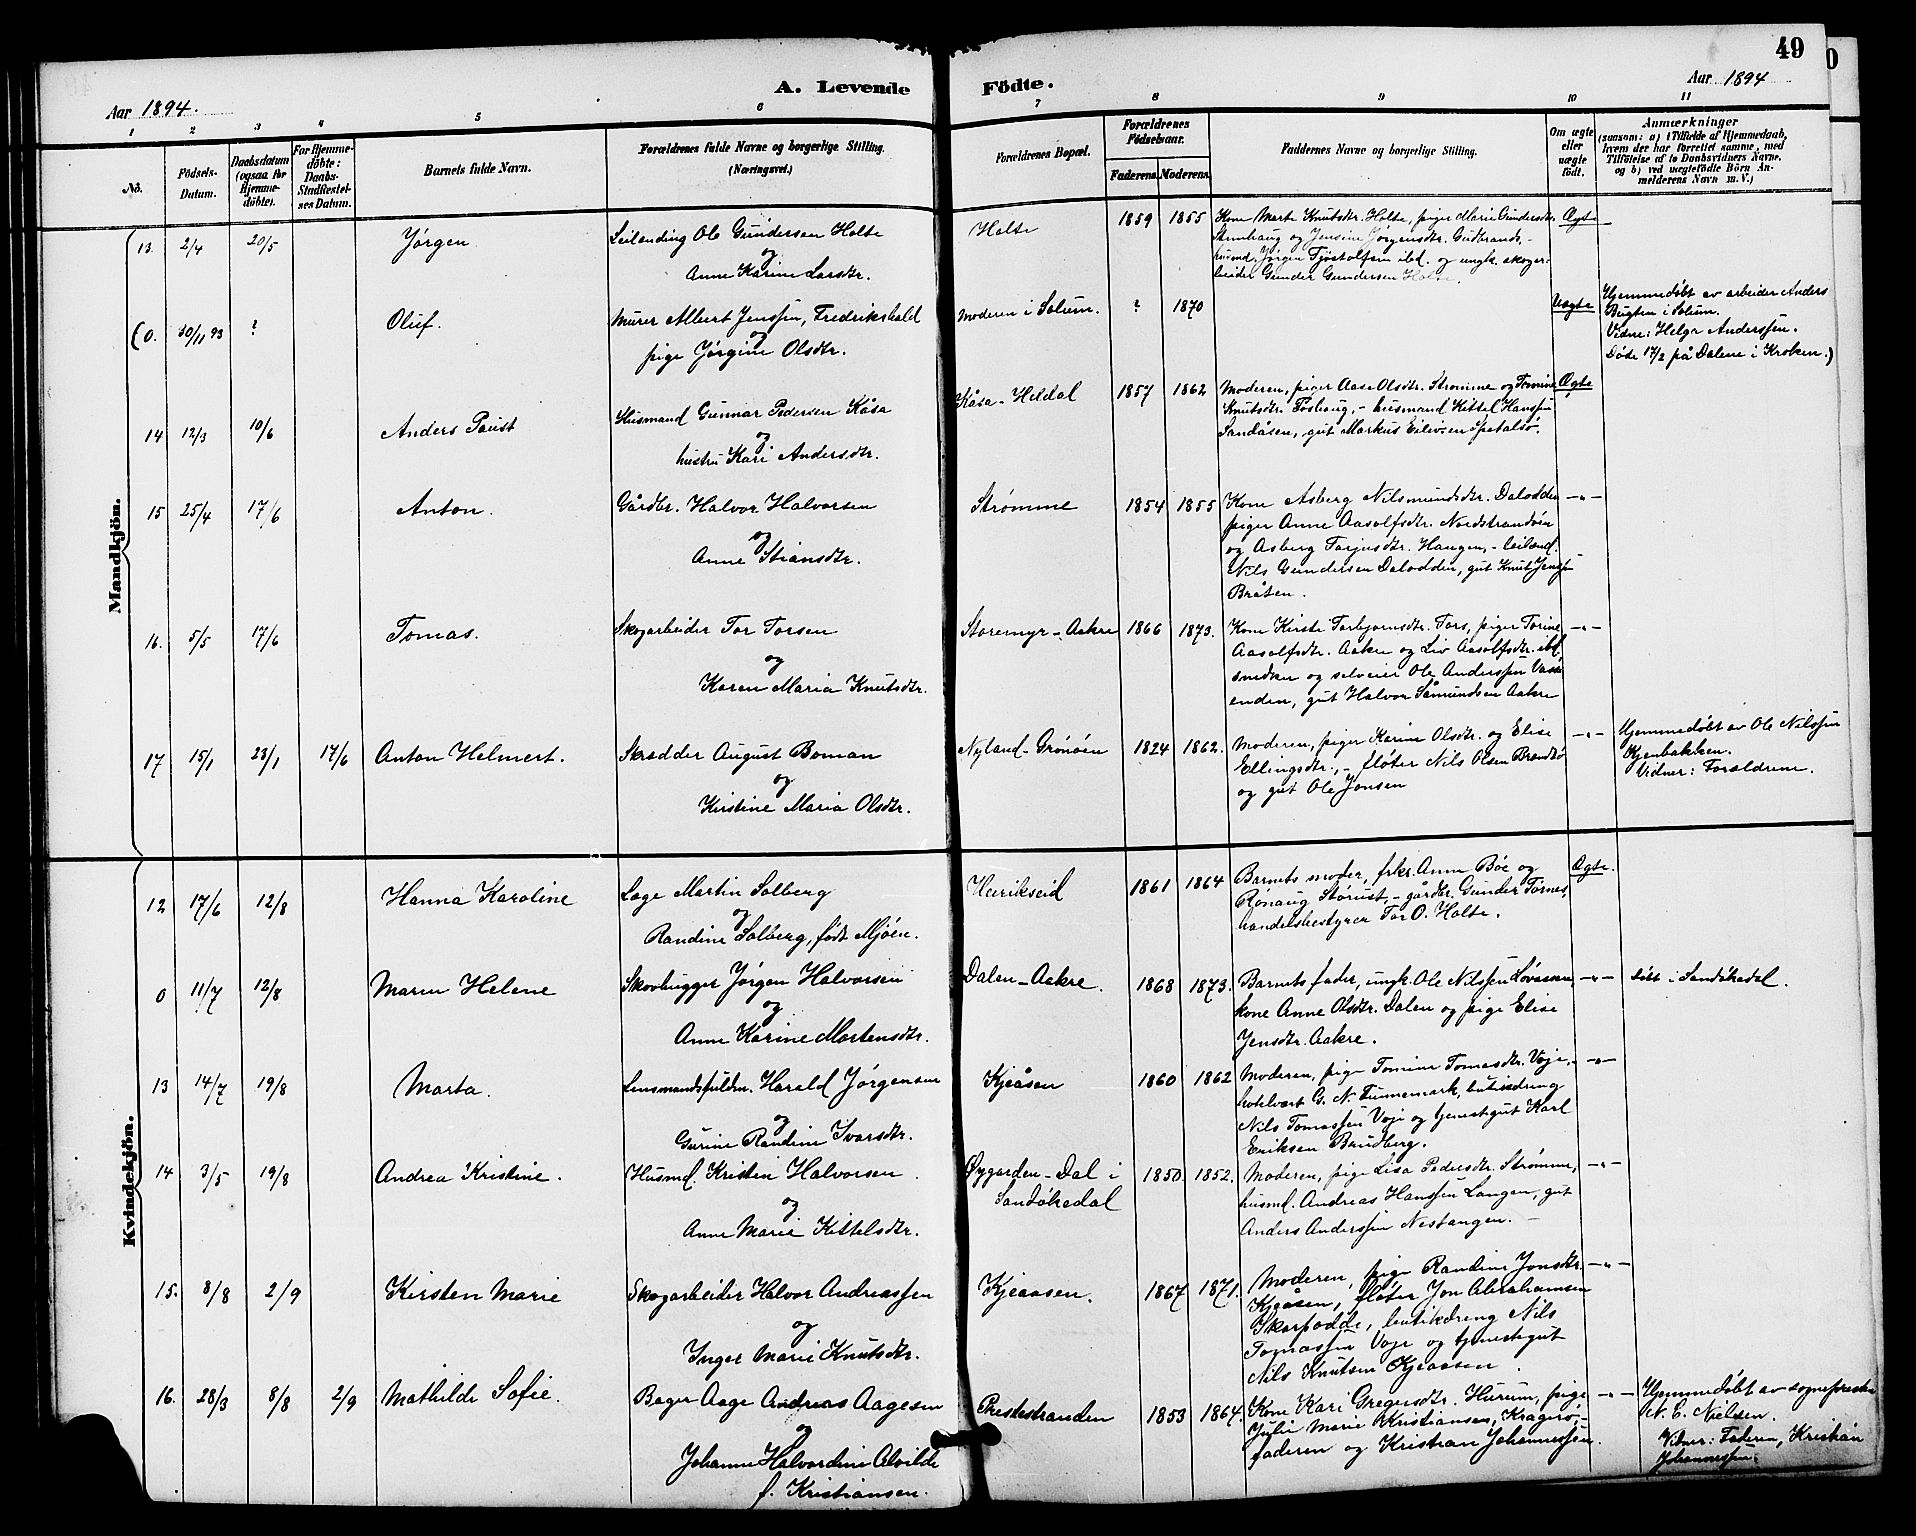 49
Aar 1894.
A. Levende Födte.
Aar 1894
1 2 3 4 5 6 7 8 9 10 11
No.
Födsels-
Datum.
Daabsdatum
(ogsaa for
Hjemme-
döbte).
For Hjemme-
döbte:
Daabs-
Stadfæstel-
ses Datum.
Barnets fulde Navn.
Forældrenes fulde Navne og borgerlige Stilling.
(Næringsvei.)
Forældrenes Bopæl.
Forældrenes
Födselsaar.
Faderens. Moderens.
Faddernes Navne og borgerlige Stilling.
Om ægte
eller
uægte
födt.
Anmærkninger
(saasom: a) i Tilfælde af Hjemmedaab,
hvem der har forrettet samme, med
Tilföielse af to Daabsvidners Navne,
og b) ved uægtefödte Börn An-
melderens Navn m. V.)
Mandkjön.
13. 2/4 20/5 Jørgen Leilending Ole Gundersen Holte
og
Anne Karine Larsdtr.
Holte 1859 1855 Kone Marte Knutsdtr. Holte, piger Marie Gundersdtr.
Stenhaug og Jensine Jørgensdtr. Gudbrands,-
husmd. Jørgen Tjøstolfsen ibd. og ungk. skogar-
beider Gunder Gundersen Holte.
Ægte
(0. 30/11 93 ? Oluf. Murer Albert Jenssen, Fredrikshald
og
pige Jørgine Olsdtr.
Moderen i Solum. ? 1870 Uægte Hjemmedøbt av arbeider Anders
Bugten i Solum.
Vidne: Helge Anderssen.
Døde 17/2 på Dalene i Kroken.)
14 12/3 10/6 Anders Paust Husmand Gunnar Pedersen Kåsa
og
hustru Kari Andersdtr.
Kåsa-Heldal 1857 1862 Moderen, piger Aase Olsdtr. Strømme og Tomine
Knutsdtr. Foshaug,- husmand Kittel Hanssen
Sandåsen, gut Markus Eilivsen Spetalsø.
Ægte
15 25/4 17/6 Anton. Gårdbr. Halvor Halvorsen
og
Anne Stiansdtr.
Strømme 1854 1855 Kone Asberg Nilsmundsdtr. Dalodden
piger Anne Aasolfsdtr. Nordstrandøen
og Asberg Tarjusdtr. Haugen,- leilænd.
Nils Gundersen Dalodden, gut Knut Jenssen
Bråten.
-"-
16. 5/5 17/6 Tomas. Skogarbeider Tor Torsen
og
Karen Maria Knutsdtr.
Storemyr-Aakre 1866 1873. Kone Kirste Torbjørnsdtr. Tors, piger Torine
Aasolfsdtr. Aakre og Liv Aasolfsdtr. ibd.
snedker og selveier Ole Anderssen Vass-
enden, gut Halvor Såmundsen Aakre
-"-
17 15/1 23/1 17/6 Anton Helmert. Skrædder August Boman
og
Kirstine Maria Olsdtr.
Nyland-Grønøen 1824 1862. Moderen, piger Karine Olsdtr. og Elise
Ellingsdtr.,- fløter Nils Olsen Brandsø
og gut Ole Jonsen
-"- Hjemmedøbt av Ole Nilssen
Kjenbakken.
Vidner: Forældrene.
Kvindekjön.
12 17/6 12/8 Hanna Karoline Læge Martin Solberg
og
Randine Solberg, født Mjøen.
Henrikseid 1861 1864 Barnets moder, frkr. Anne Bøe og
Rønaug Størust,- gårdbr. Gunder Tørnes,
handelsbestyrer Tor O. Holte.
Ægte.
0 11/7 12/8 Maren Helene Skovhugger Jørgen Halvorsen
og
Anne Karine Mortensdtr.
Dalen-Aakre. 1868 1873. Barnets fader, ungk. Ole Nilssen Løvaasen,
kone Anne Olsdtr. Dalen og pige Elise
Jensdtr. Aakre.
-"- døbt i Sandøkedal.
13 14/7 19/8 Marta. Lensmandsfuldm. Harald Jørgensen
og
Gurine Randine Ivarsdtr.
Kjeåsen 1860 1862 Moderen, pige Tomine Tomasdtr. Voje,
hotelvært G. N. Tunnemark, butikdreng
Nils Tomassen Voje og tjenestgut Karl
Eriksen Brudberg.
-"-
14 3/5 19/8 Andrea Kristine. Husmd. Kristen Halvorsen
og
Anne Marie Kittelsdtr.
Øygarden-Dal i
Sandøkedal
1850. 1852. Moderen, pige Lisa Pedersdtr. Strømme,
husmd. Andreas Hanssen Langen, gut
Anders Anderssen Nestangen.-
-"-
15. 8/8 2/9 Kirsten Marie Skogarbeider Halvor Andreassen
og
Inger Marie Knutsdtr.
Kjeaasen. 1867 1871. Moderen, pige Randine Jonsdtr.
Kjeåsen, fløter Jon Abrahamsen
Skarpodde, butikdreng Nils
Tomassen Voje og tjenestgut
Nils Knutsen Kjeaasen.
-"-
16. 28/3 8/8 2/9 Mathilde Sofie. Bager Aage Andreas Aagesen
og
Johanne Halvordine Alvilde
f. Kristiansen.
Prestestranden 1853 1864. Kone Kari Gregersdtr. Hurum, pige
Julie Marie Kristiansen, Kragerø,-
faderen og Kristian Johannessen.
-"- Hjemmedøbt av sogneprest
N. C. Nielsen.
Vidner: Faderen, Kristian
Johannessen.